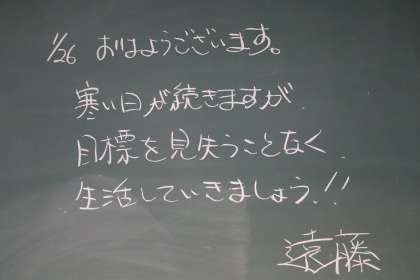 1/26 おはようございます。
寒い日が続きますが
目標を見失うことなく
生活していきましょう!!
遠藤